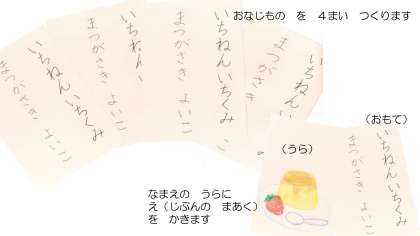 おなじもの を 4まい つくります
いちねん いちくみ
まつがさき よいこ
いちねん
まつがさき よいこ
いちねん いちくみ
まつがさき よいこ
いちねん
まつがさき
(おもて)
いちねん いちくみ
まつがさき よいこ
(うら)
なまえの うらに
え(じぶんの まあく)
を かきます